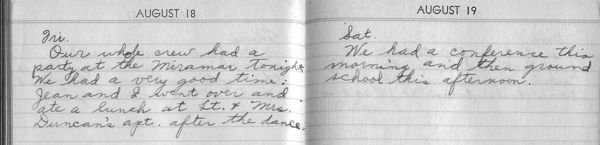 AUGUST 18
Fri.
Our whole crew had a
party at the Miramar tonight
We had a very good time.
Jean and I went over and
ate a lunch at Lt. & Mrs.
Duncan's apt. after the dance.
AUGUST 19
Sat.
We had a conference this
morning and then ground
school this afternoon.